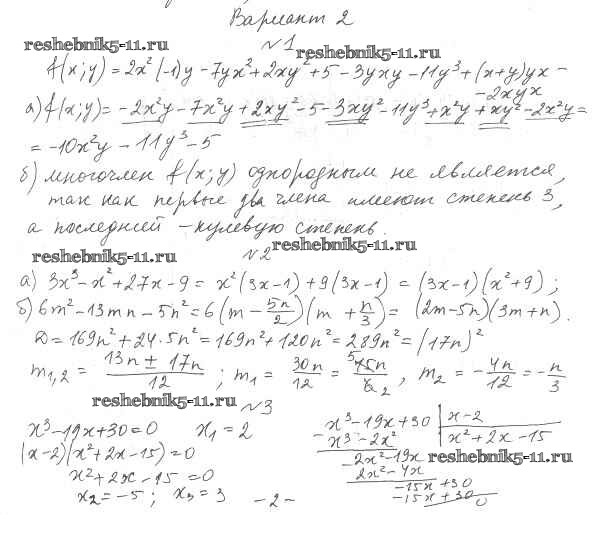 Вариант 2
reshebnik5-11.ru
№1
reshebnik5-11.ru
f(x;y)=2x²(-1)y-7yx²+2xy²+5-3yxy-11y³+(x+y)yx-
-2xyx
а) f(x;y)=-2x²y-7x²y+2xy²-5-3xy²-11y³+x²y+xy²-2x²y=
=-10x²y-11y³-5
б) многочлен f(x;y) однородным не является,
так как первые два члена имеют степень 3,
а последней - нулевую степень.
reshebnik5-11.ru
№2
reshebnik5-11.ru
а) 3x³-x²+27x-9=x²(3x-1)+9(3x-1)=(3x-1)(x²+9);
б) 6m²-13mn-5n²=6(m-5n/2)(m+n/3)=(2m-5n)(3m+n).
D=169n²+24·5n²=169n²+120n²=289n²=(17n)²
m1,2=(13n±17n)/12; m1=30n/12=5 15n/6 2, m2=-4n/12=-n/3
reshebnik5-11.ru
№3
x³-19x+30=0 x1=2
(x-2)(x²+2x-15)=0
x²+2x-15=0
x2=-5; x3=3
x³-19x+30 | x-2
-x³-2x² x²+2x-15
-2x²-19x
reshebnik5-11.ru
2x²-4x
-15x+30
-15x+30
0
-2-